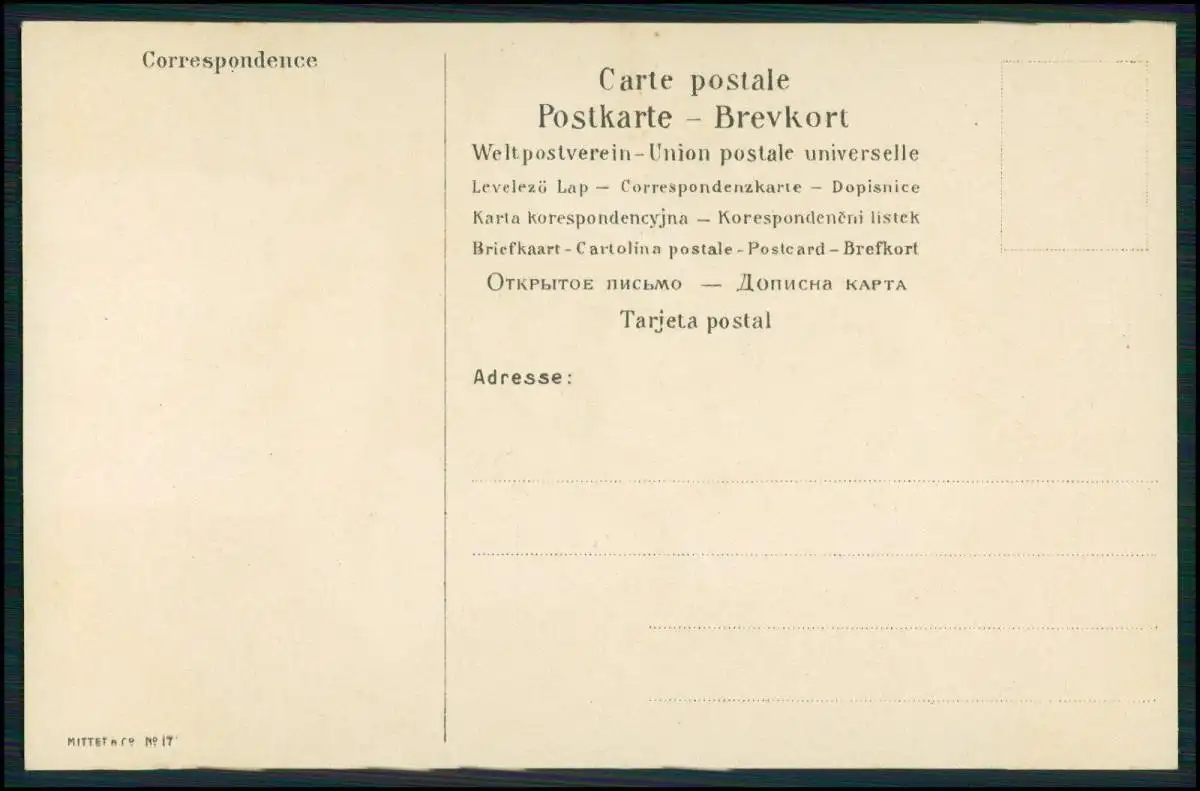 Correspondence
Carte postale
Postkarte – Brevkort
Weltpostverein – Union postale universelle
Levelezö Lap – Correspondenzkarte – Dopisnice
Karta korespondencyjna – Korespondenčni listek
Briefkaart - Cartolina postale - Postcard – Brefkort
Открытое письмо — Дописна карта
Tarjeta postal
Adresse:
MITTET & Co No 17